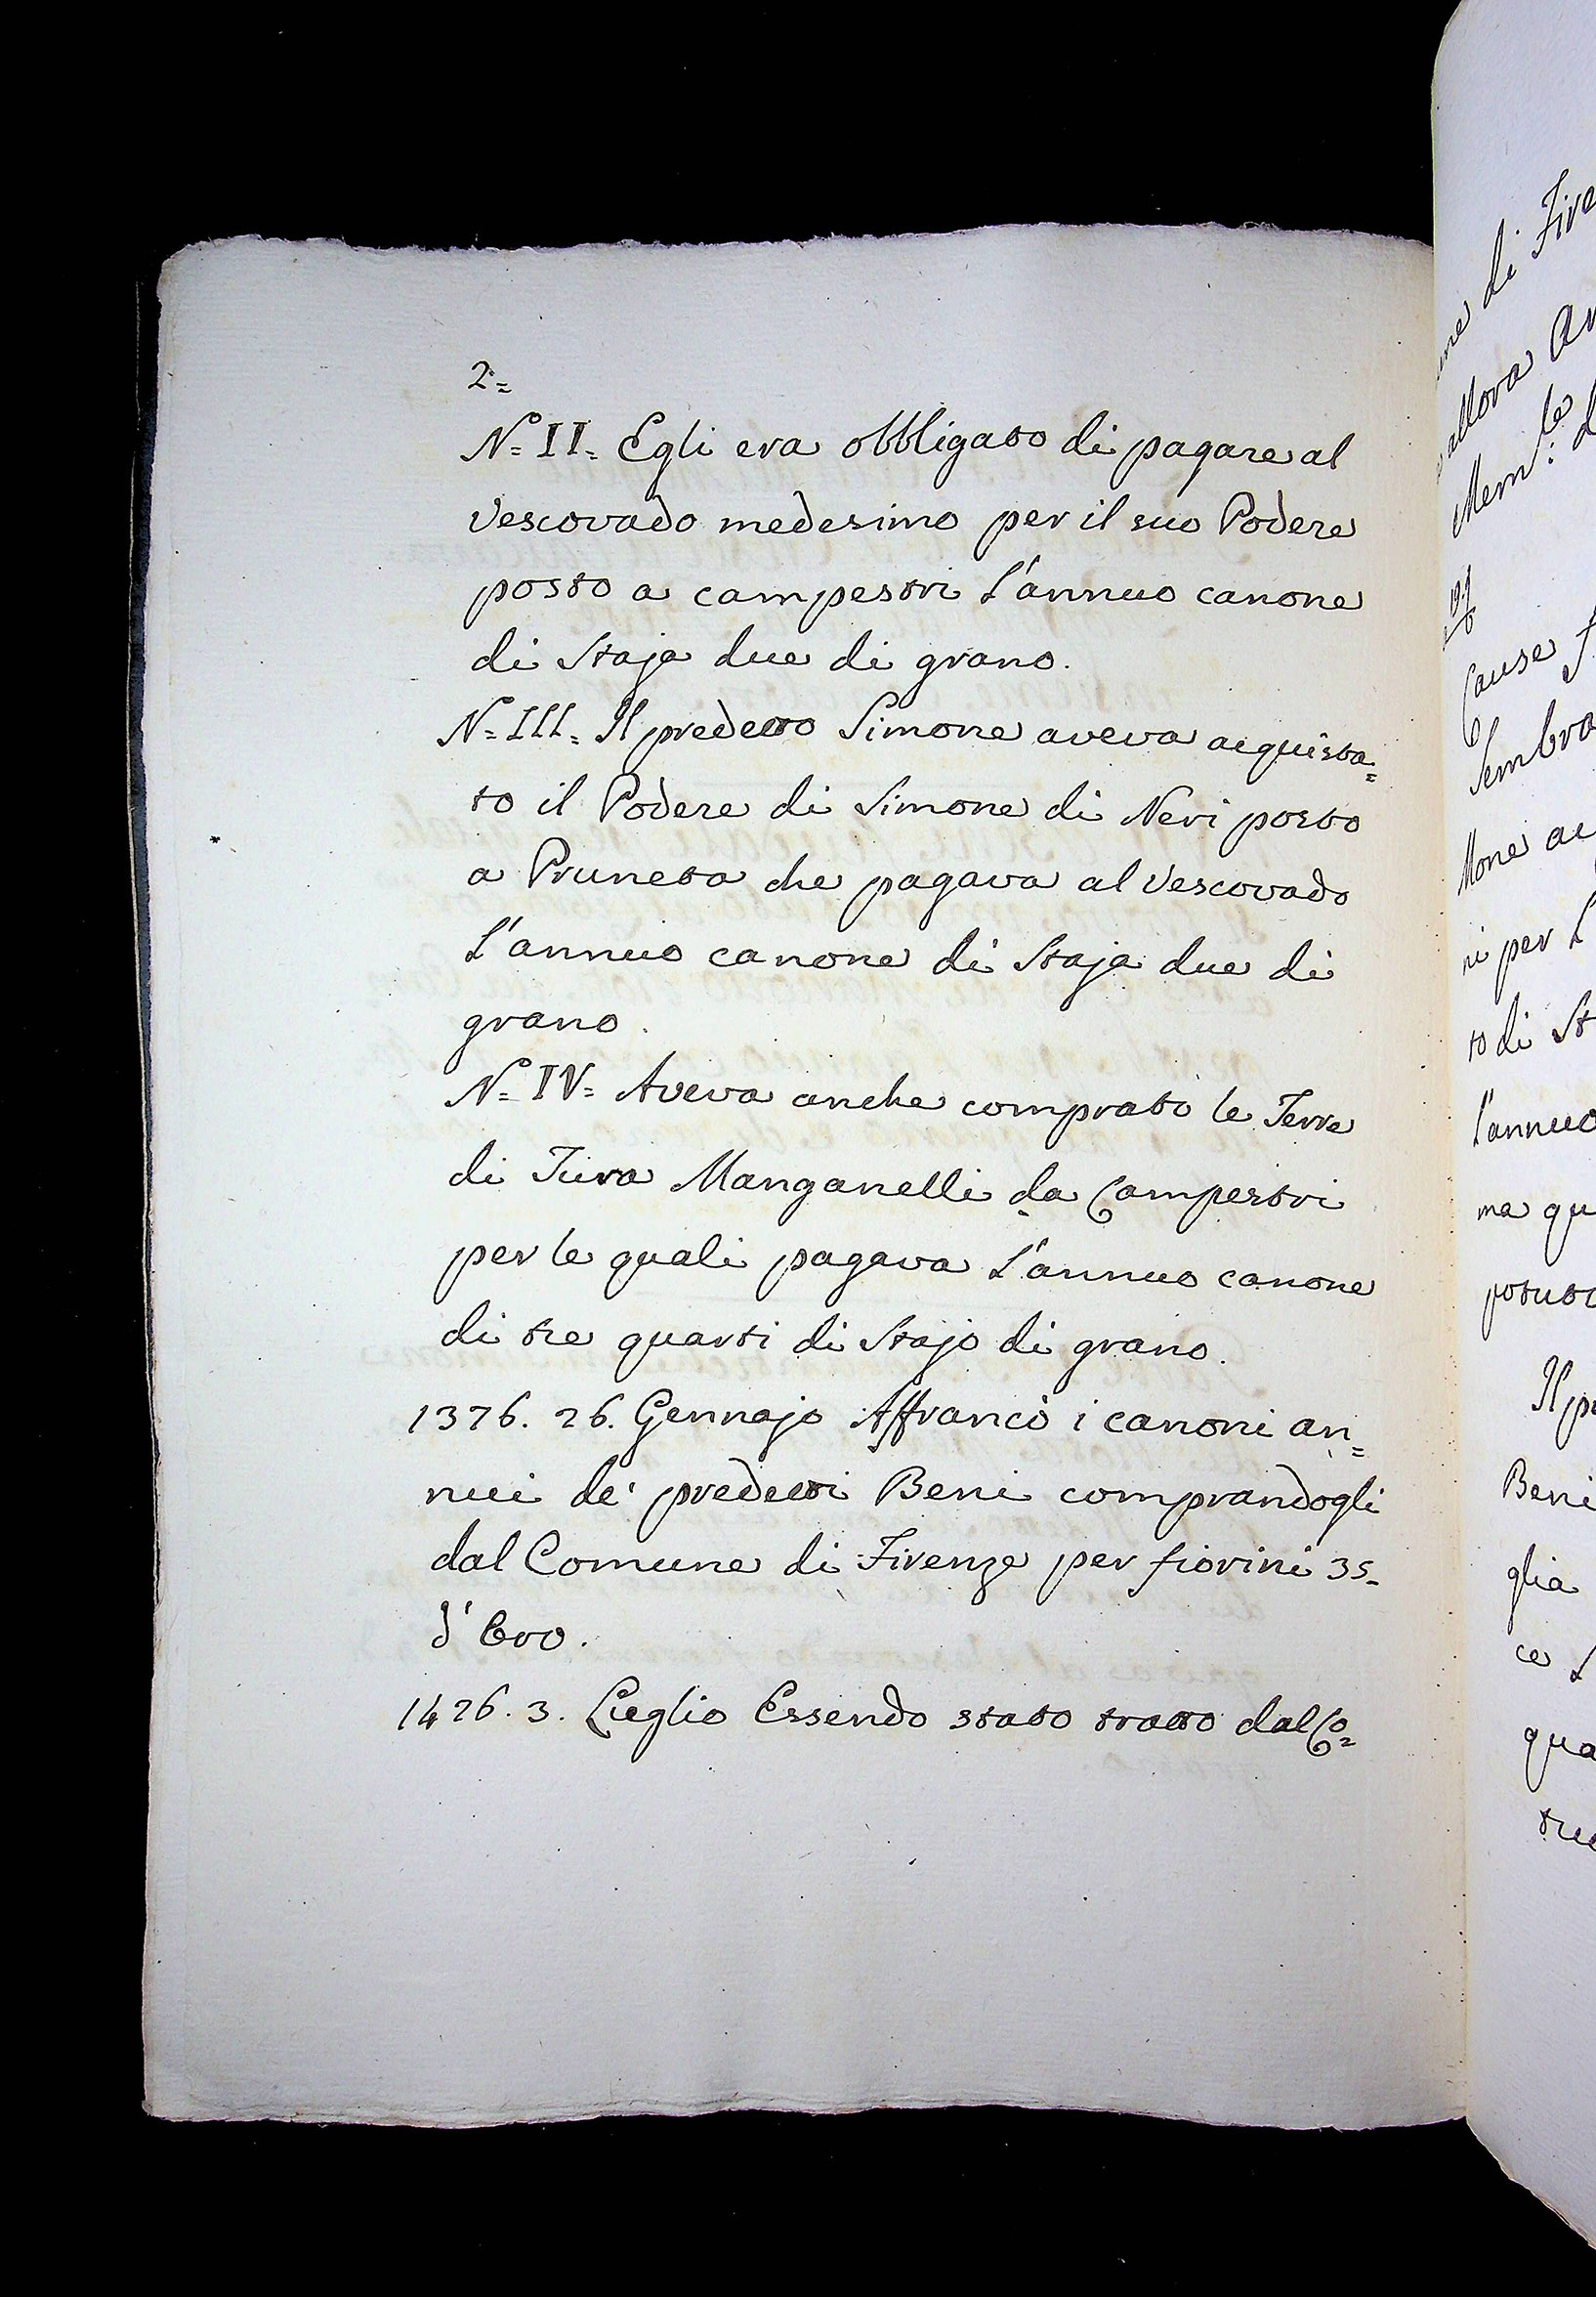 2.=
N.= II.= Egli era obbligato di pagare al
Vescovado medesimo per il suo Podere
posto a campestri l'annuo canone
di Staja due di grano.
N.= III.= Il predetto Simone aveva acquista=
to il Podere di Simone di Neri posto
a Pruneta che pagava al Vescovado
l'annuo canone di Staja due di
grano.
N.= IV= Aveva anche comprato le Terre
di Tura Manganelli da Campestri
per le quali pagava l'annuo canone
di tre quarti di Stajo di grano.
1376. 26. Gennajo Affrancò i canoni an=
nui de' predetti Beni comprandogli
dal Comune di Firenze per fiorini 35.
d'Oro.
1426. 3. Luglio Essendo stato tratto dal Co=
di
allora
Cause
Mone
ni per l'
to di
l'annuo
ma
Beni
glia
ce